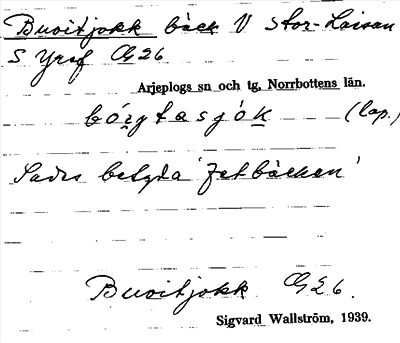 Buoitjokk bäck V Stor-Laisan
S Yraf G26.
Arjeplogs sn och tg, Norrbottens län.
bórgtasjók (lap.)
Sades betyda 'Fetbäcken'
Buoitjokk G26.
Sigvard Wallström, 1939.